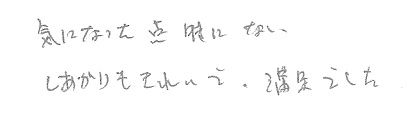 気になった点 特に ない、
しあがりもきれいで、満足でした